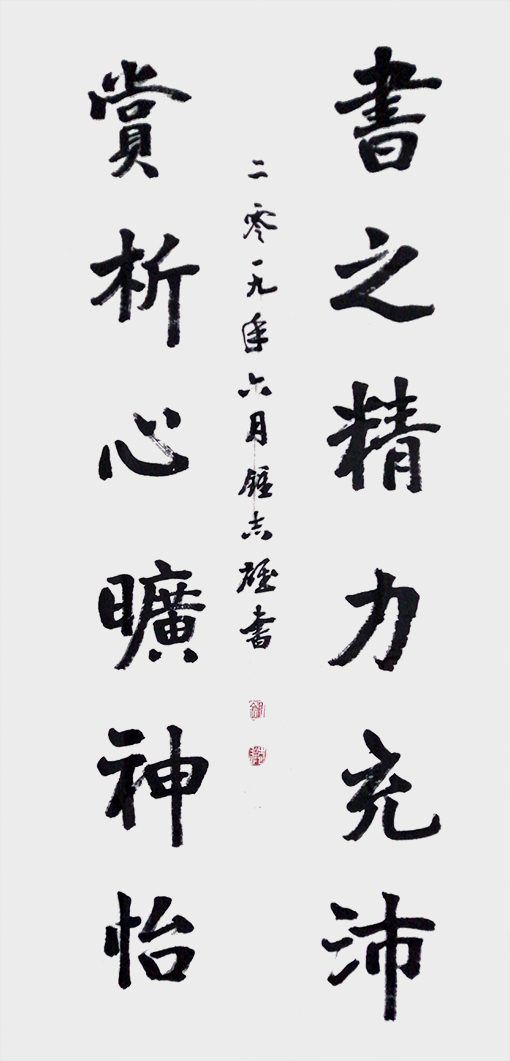 書之精力充沛
賞析心曠神怡
二零一九年六月鍾志雄書